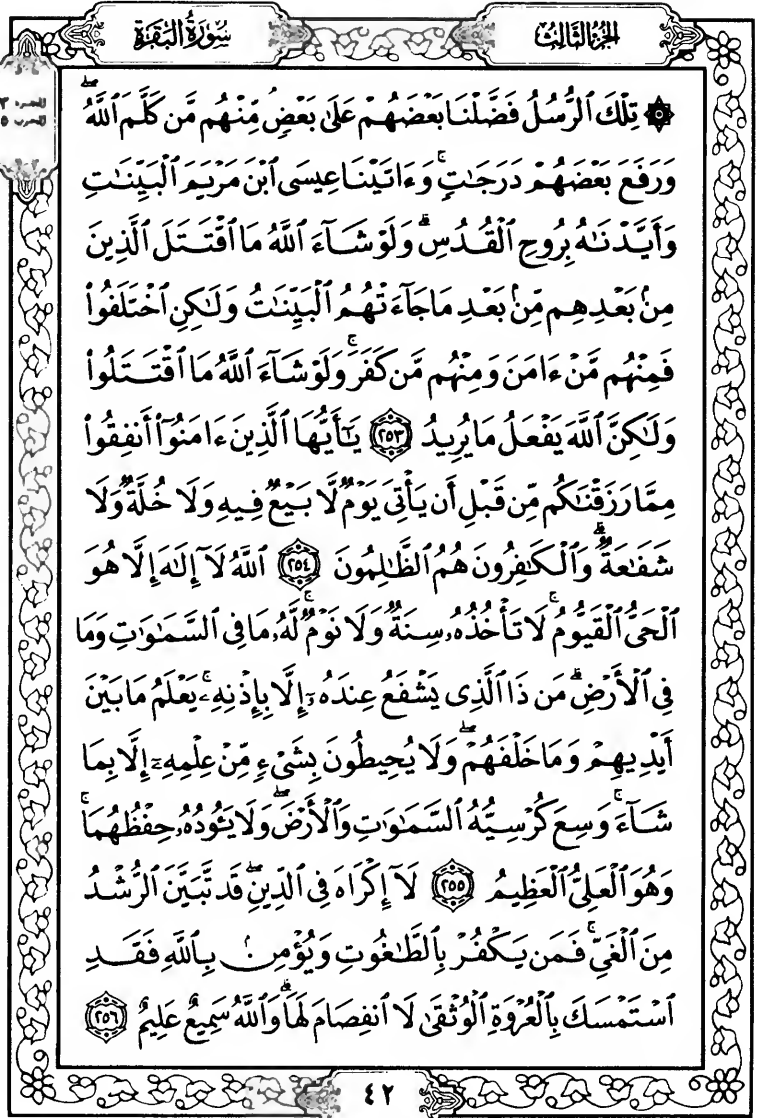 الجزء الثالث
سورة البقرة
الجزء ٣
الحزب ٥
۞ تِلْكَ ٱلرُّسُلُ فَضَّلْنَا بَعْضَهُمْ عَلَىٰ بَعْضٍۘ مِّنْهُم مَّن كَلَّمَ ٱللَّهُۖ
وَرَفَعَ بَعْضَهُمْ دَرَجَـٰتٍۚ وَءَاتَيْنَا عِيسَى ٱبْنَ مَرْيَمَ ٱلْبَيِّنَـٰتِ
وَأَيَّدْنَـٰهُ بِرُوحِ ٱلْقُدُسِۗ وَلَوْ شَآءَ ٱللَّهُ مَا ٱقْتَتَلَ ٱلَّذِينَ
مِنۢ بَعْدِهِم مِّنۢ بَعْدِ مَا جَآءَتْهُمُ ٱلْبَيِّنَـٰتُ وَلَـٰكِنِ ٱخْتَلَفُوا۟
فَمِنْهُم مَّنْ ءَامَنَ وَمِنْهُم مَّن كَفَرَۚ وَلَوْ شَآءَ ٱللَّهُ مَا ٱقْتَتَلُوا۟
وَلَـٰكِنَّ ٱللَّهَ يَفْعَلُ مَا يُرِيدُ ٢٥٣ يَـٰٓأَيُّهَا ٱلَّذِينَ ءَامَنُوٓا۟ أَنفِقُوا۟
مِمَّا رَزَقْنَـٰكُم مِّن قَبْلِ أَن يَأْتِىَ يَوْمٌ لَّا بَيْعٌ فِيهِ وَلَا خُلَّةٌ وَلَا
شَفَـٰعَةٌۗ وَٱلْكَـٰفِرُونَ هُمُ ٱلظَّـٰلِمُونَ ٢٥٤ ٱللَّهُ لَآ إِلَـٰهَ إِلَّا هُوَ
ٱلْحَىُّ ٱلْقَيُّومُۚ لَا تَأْخُذُهُۥ سِنَةٌ وَلَا نَوْمٌۚ لَّهُۥ مَا فِى ٱلسَّمَـٰوَٰتِ وَمَا
فِى ٱلْأَرْضِۗ مَن ذَا ٱلَّذِى يَشْفَعُ عِندَهُۥٓ إِلَّا بِإِذْنِهِۦۚ يَعْلَمُ مَا بَيْنَ
أَيْدِيهِمْ وَمَا خَلْفَهُمْۖ وَلَا يُحِيطُونَ بِشَىْءٍ مِّنْ عِلْمِهِۦٓ إِلَّا بِمَا
شَآءَۚ وَسِعَ كُرْسِيُّهُ ٱلسَّمَـٰوَٰتِ وَٱلْأَرْضَۖ وَلَا يَـُٔودُهُۥ حِفْظُهُمَاۚ
وَهُوَ ٱلْعَلِىُّ ٱلْعَظِيمُ ٢٥٥ لَآ إِكْرَاهَ فِى ٱلدِّينِۖ قَد تَّبَيَّنَ ٱلرُّشْدُ
مِنَ ٱلْغَىِّۚ فَمَن يَكْفُرْ بِٱلطَّـٰغُوتِ وَيُؤْمِنۢ بِٱللَّهِ فَقَدِ
ٱسْتَمْسَكَ بِٱلْعُرْوَةِ ٱلْوُثْقَىٰ لَا ٱنفِصَامَ لَهَاۗ وَٱللَّهُ سَمِيعٌ عَلِيمٌ ٢٥٦
٤٢